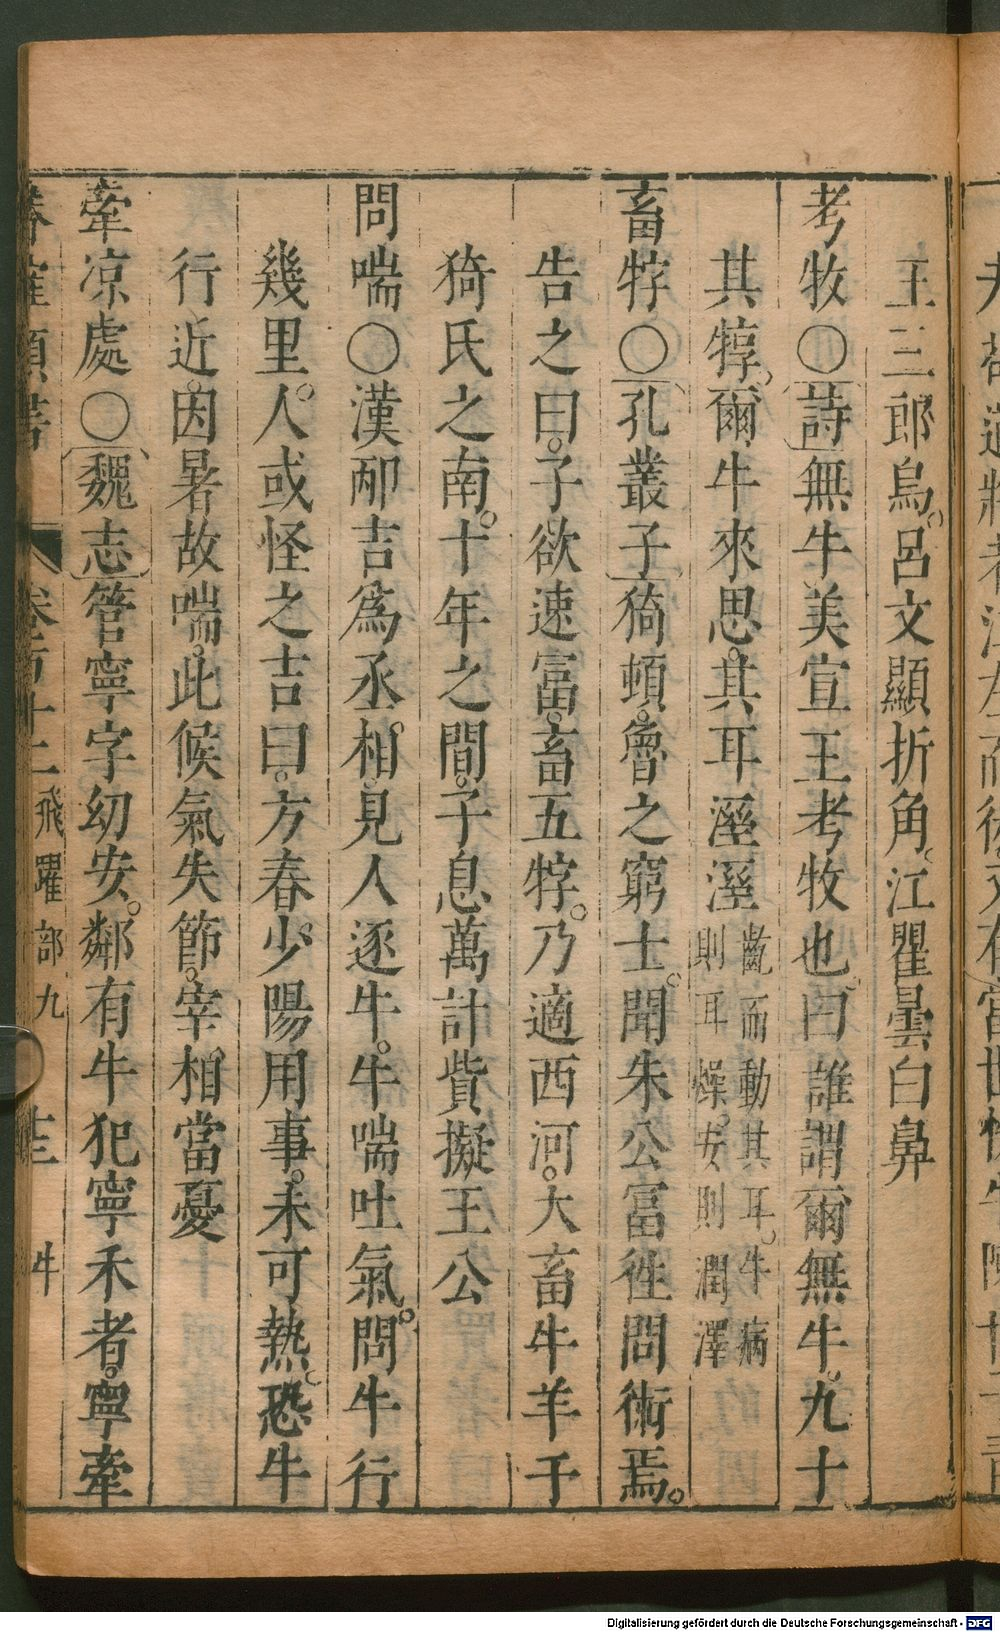 王三郎烏。呂文顯折角。江瞿曇白鼻
考牧〇詩無牛美宣王考牧也曰誰謂爾無牛。九十
其犉。爾牛來思。其耳溼溼齝而動其耳。牛病則耳燥。安則潤澤
畜牸〇孔叢子猗頓。魯之窮士。聞朱公富徃問術焉。
告之曰。子欲速富。畜五牸。乃適西河。大畜牛羊于
猗氏之南。十年之間。子息萬計貲擬王公
問喘〇漢邴吉爲丞相。見人逐牛。牛喘吐氣。問牛行
幾里。人或怪之吉曰。方春少陽用事。未可熱。恐牛
行近。因暑故喘。此候氣失節。宰相當憂
牽凉處〇魏志管寧字幼安。鄰有牛犯寧禾者。寧牽
飛躍部九 牛
Digitalisierung gefördert durch die Deutsche Forschungsgemeinschaft - DFG